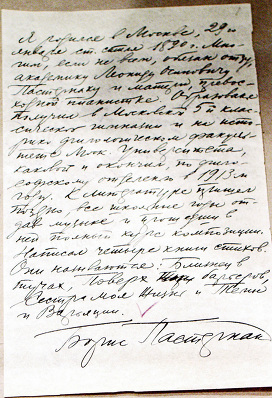 Я родился в Москве, 29го
января ст. стиля 1890 г. Мно-
гим, если не всем, обязан отцу,
академику Леониду Осиповичу
Пастернаку и матери, превос-
ходной пианистке. Образование
получил в Московской 5й класси-
ческой гимназии и на исто-
рико-филологическом факуль-
тете Моск. Университета,
каковой и окончил, по фило-
софскому отделению в 1913-м
году. К литературе пришел
поздно, все школьные годы от-
дав музыке и пройдя в
ней полный курс композиции.
Написал четыре книги стихов.
Они называются: Близнец в
тучах, Поверх барьеров
Сестра моя жизнь и Темы
и Варьяции.
Борис Пастернак